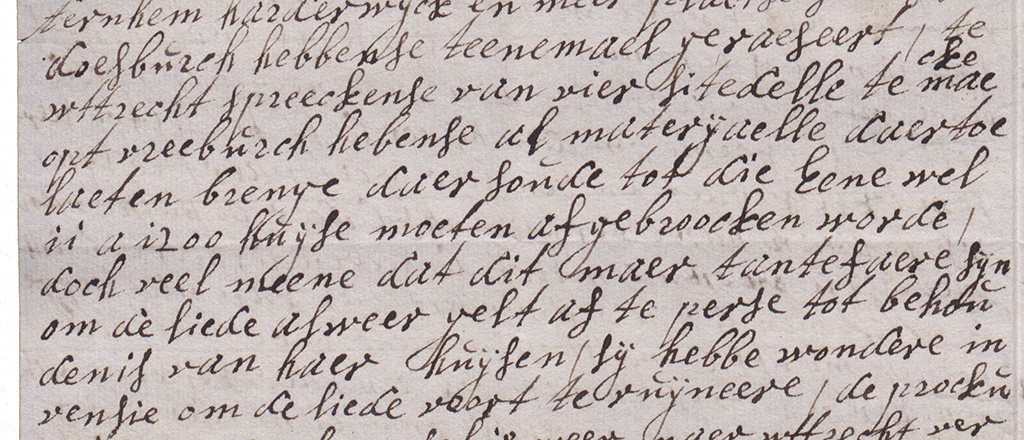 Aernhem harderwijck en meer
doesburch hebbense teenemael geraeseert / te
wttrecht spreeckense van vier sitedelle te mae
cke
opt vreeburch hebense al materijaelle daertoe
laeten brenge daer soude tot die eene wel
11 a 1200 huijse moeten afgebroocken worde /
doch veel meene dat dit maer tantefaere sijn
om de liede alweer gelt af te perse tot behou
denis van haer huijsen / sij hebbe wondere in
vensie om de liede voort te ruijneere / de procku
wttrecht ver